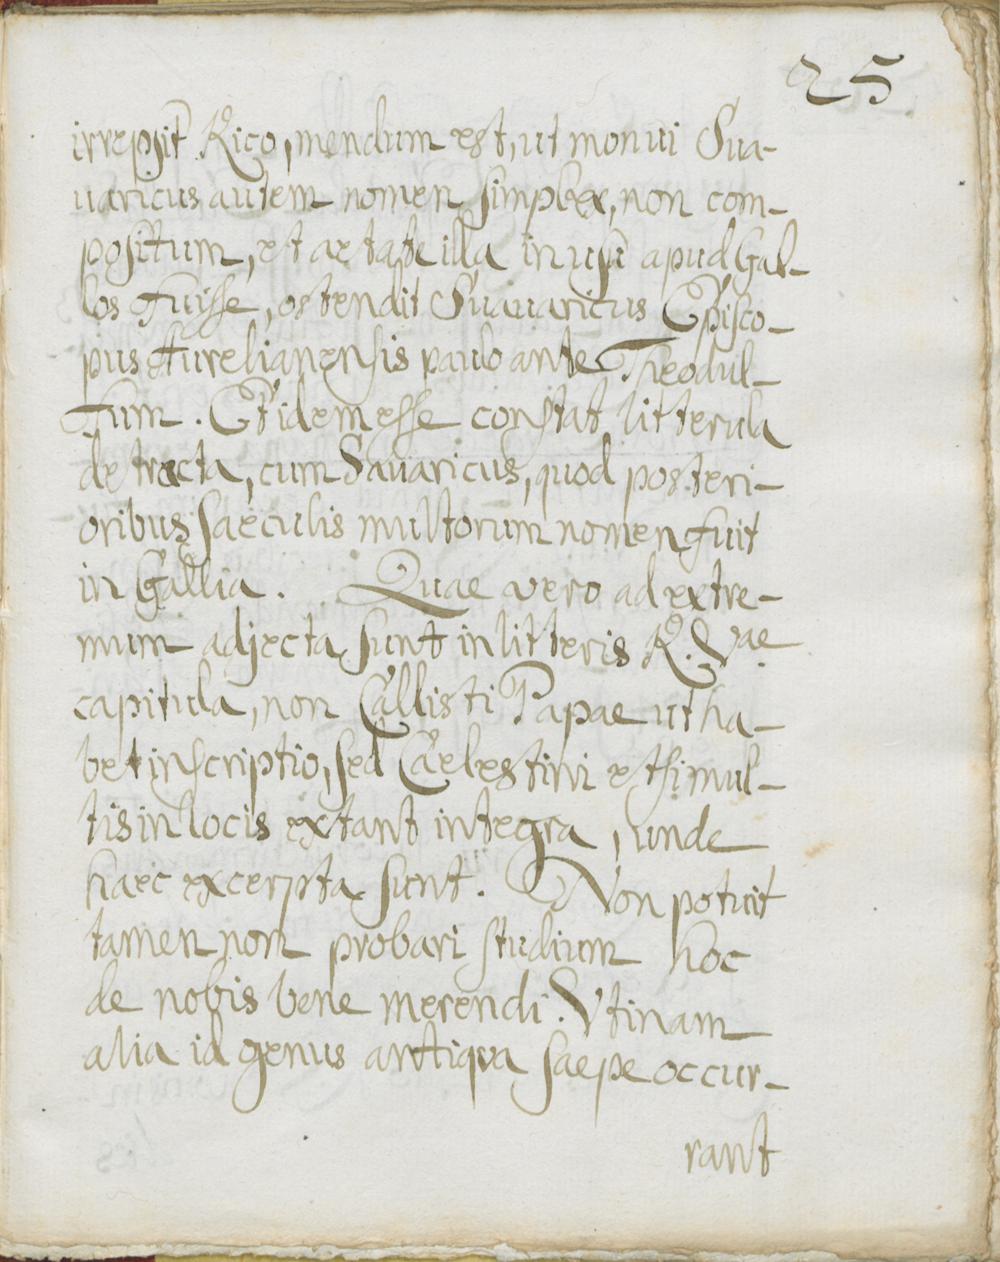 25
irrepsit Rico, mendum est, ut monui Sua-
uaricus autem nomen simplex, non com-
positum, et aetate illa in usu apud Gal-
los fuisse, ostendit Suauaricus Episco-
pus Aurelianensis paulo ante Theodul-
fum. Et idem esse constat litterula
detracta, cum Sauaricus, quod posteri-
oribus saeculis multorum nomen fuit
in Gallia. Quae vero ad extre-
mum adjecta sunt in litteris R. Vae
capitula, non Callisti Papae ut ha-
bet inscriptio, sed Caelestini et si mul-
tis in locis extant integra, unde
haec excerpta sunt. Non potuit
tamen non probari studium hoc
de nobis bene merendi. Vtinam
alia id genus antiqua saepe occur-
rant